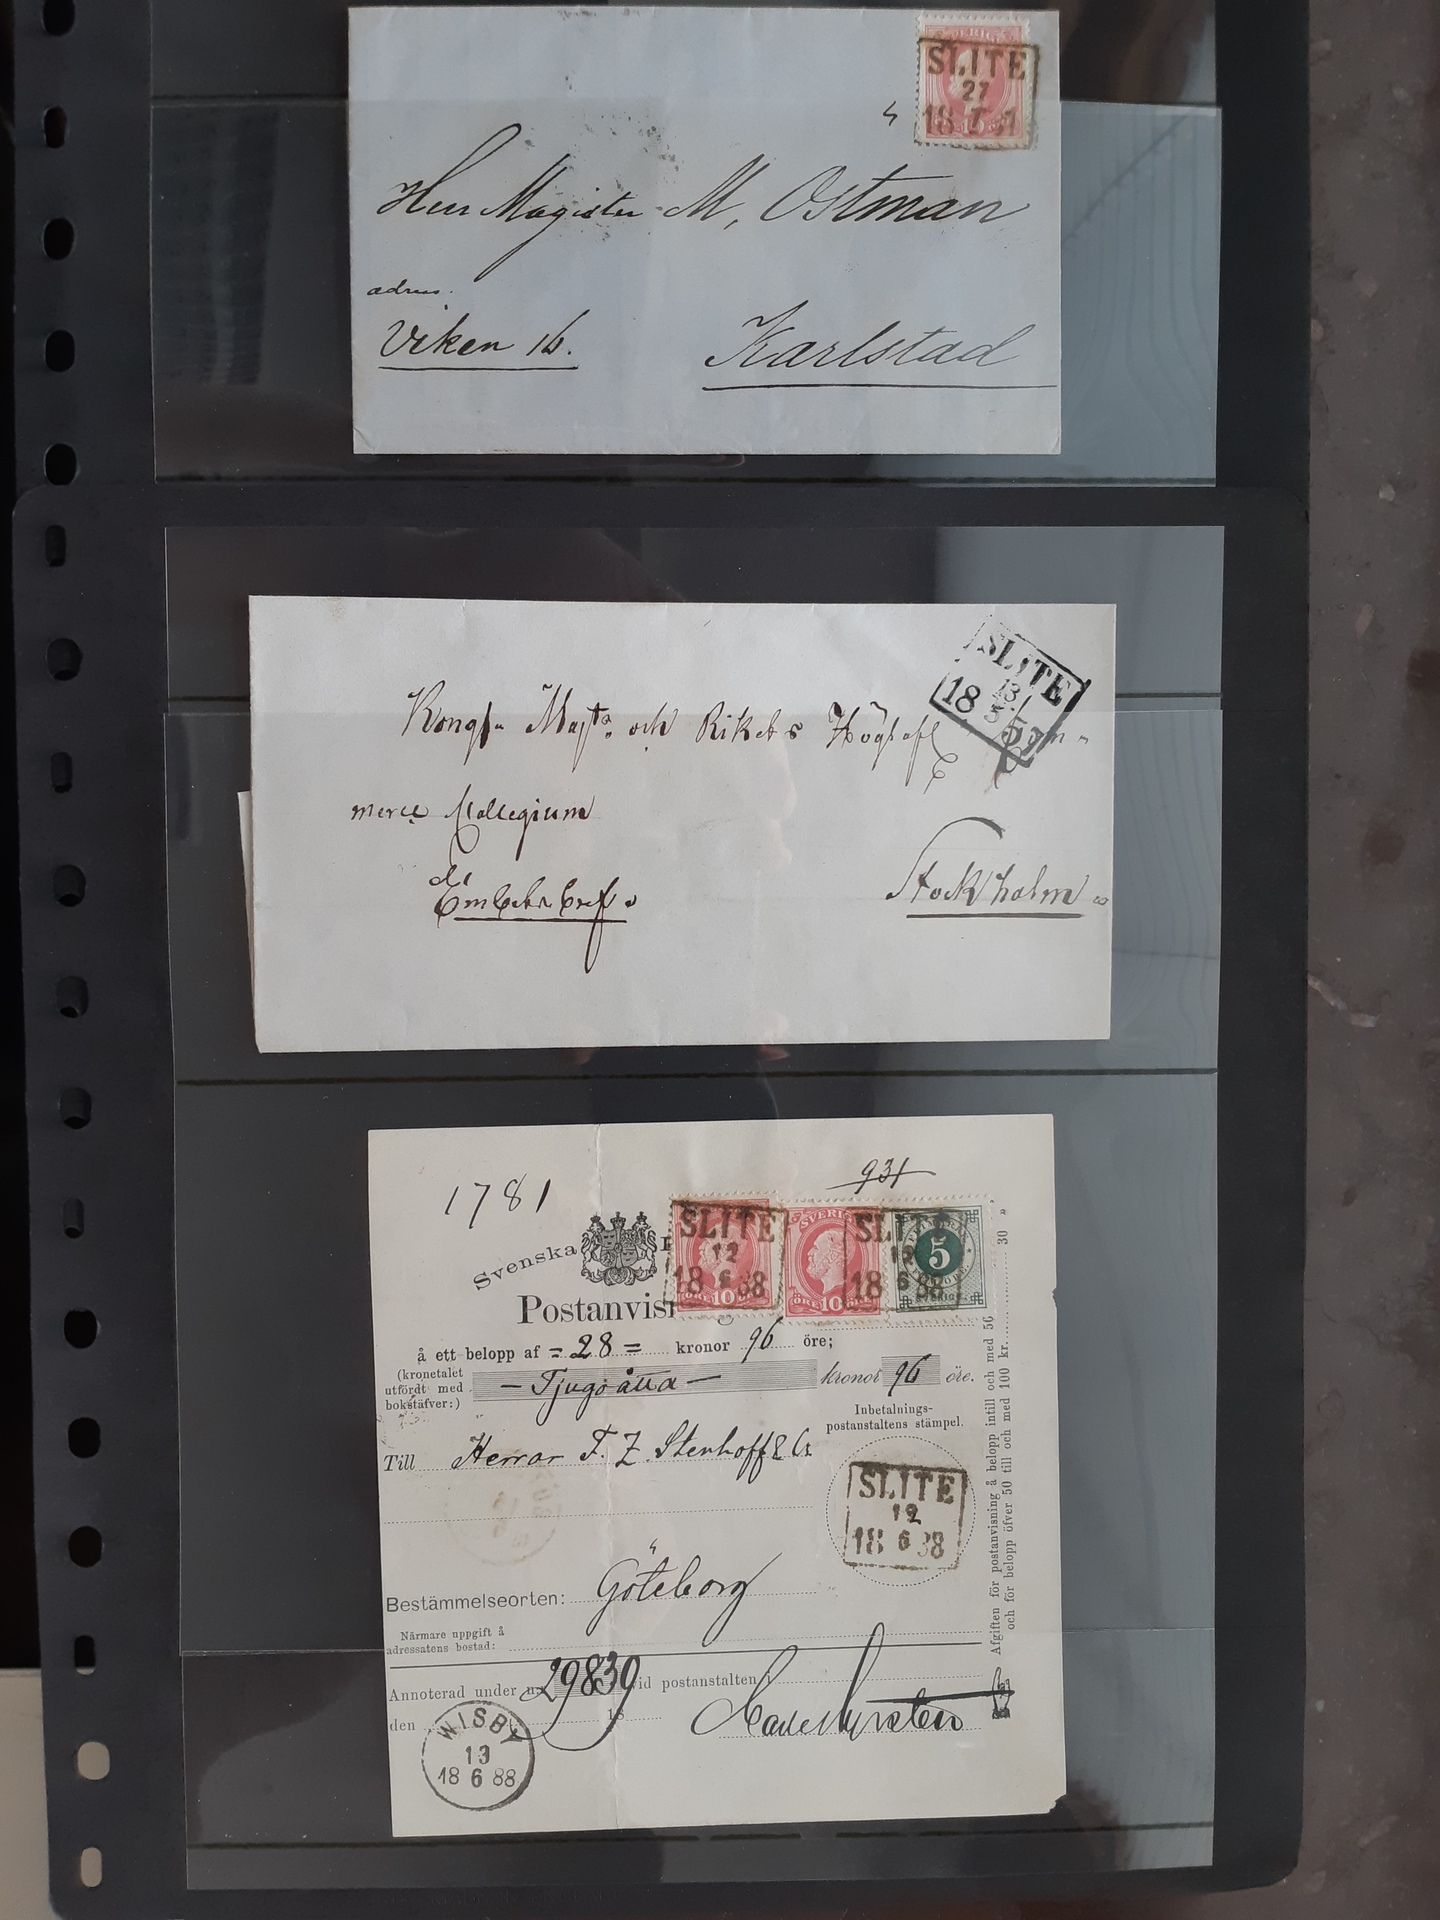 SVERIGE
SLITE
27
18 7
10
Herr Magister M, Ostman
adress.
Viken 16.
Karlstad
SLITE
13
18 5 57
Kongl. Majts och Rikets Höglofl. Com-
merce Collegium
Embetsbref
Stockholm
1781
931
Svenska
Postanvisn
SLITE
12
18 6 88
ÖRE 10
SVERIGE
ÖRE 10
SLITE
12
18 6 88
5
SVERIGE
å ett belopp af = 28 = kronor 96 öre;
(kronetalet
utfördt med
bokstäfver:)
— Tjugoåtta — kronor 96 öre.
Inbetalnings-
postanstaltens stämpel.
Till Herrar F. Z. Stenhoff & Co
SLITE
12
18 6 88
Bestämmelseorten: Göteborg
Närmare uppgift å
adressatens bostad:
Annoterad under n:r 29839 vid postanstalten
den 18
WISBY
13
18 6 88
Afgiften för postanvisning å belopp intill och med 50
och för belopp öfver 50 till och med 100 kr. 30 »